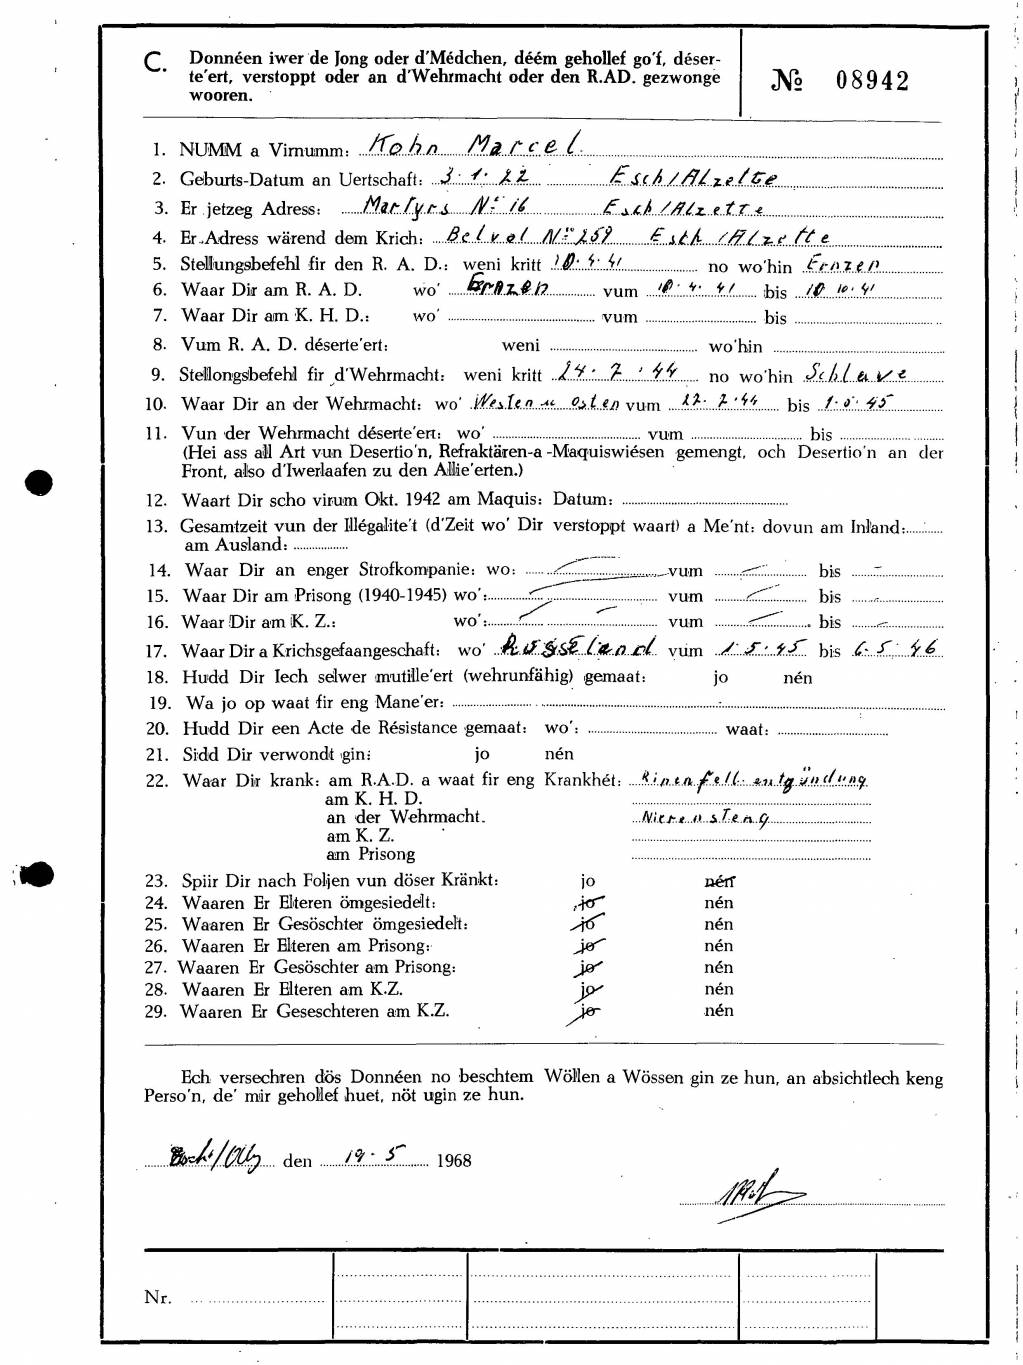 C. Donnéen iwer de Jong oder d'Médchen, déém gehollef go'f, déser-
te'ert, verstoppt oder an d'Wehrmacht oder den R.AD. gezwonge
wooren.
№ 08942
1. NUMM a Virnumm: Kohn Marcel
2. Geburts-Datum an Uertschaft: 3.1.22 Esch/Alzette
3. Er jetzeg Adress: Martyrs No 16 Esch/Alzette
4. Er Adress wärend dem Krich: Belval No 259 Esch/Alzette
5. Stellungsbefehl fir den R. A. D.: weni kritt 10.4.41 no wo'hin Ernzen
6. Waar Dir am R. A. D. wo' Ernzen vum 10.4.41 bis 10 10.41
7. Waar Dir am K. H. D.: wo' vum bis
8. Vum R. A. D. déserte'ert: weni wo'hin
9. Stellongsbefehl fir d'Wehrmacht: weni kritt 24.7.44 no wo'hin Schlawe
10. Waar Dir an der Wehrmacht: wo' Westen u Osten vum 22.7.44 bis 1.5.45
11. Vun der Wehrmacht déserte'ert: wo' vum bis
(Hei ass all Art vun Desertio'n, Refraktären-a -Maquiswiésen gemengt, och Desertio'n an der
Front, also d'Iwerlaafen zu den Allie'erten.)
12. Waart Dir scho virum Okt. 1942 am Maquis: Datum:
13. Gesamtzeit vun der Illégalite't (d'Zeit wo' Dir verstoppt waart) a Me'nt: dovun am Inland:
am Ausland:
14. Waar Dir an enger Strofkompanie: wo: vum bis
15. Waar Dir am Prisong (1940-1945) wo': vum bis
16. Waar Dir am K. Z.: wo': vum bis
17. Waar Dir a Krichsgefaangeschaft: wo' Russland vum 1.5.45 bis 6.5.46
18. Hudd Dir Iech selwer mutille'ert (wehrunfähig) gemaat: jo nén
19. Wa jo op waat fir eng Mane'er:
20. Hudd Dir een Acte de Résistance gemaat: wo': waat:
21. Sidd Dir verwondt gin: jo nén
22. Waar Dir krank: am R.A.D. a waat fir eng Krankhét: Ripenfell entzündung
am K. H. D.
an der Wehrmacht. Nierensteng
am K. Z.
am Prisong
23. Spiir Dir nach Foljen vun döser Kränkt: jo nén
24. Waaren Er Elteren ömgesiedelt: jo nén
25. Waaren Er Gesöschter ömgesiedelt: jo nén
26. Waaren Er Elteren am Prisong: jo nén
27. Waaren Er Gesöschter am Prisong: jo nén
28. Waaren Er Elteren am K.Z. jo nén
29. Waaren Er Geseschteren am K.Z. jo nén
Ech versechren dös Donnéen no beschtem Wöllen a Wössen gin ze hun, an absichtlech keng
Perso'n, de' mir gehollef huet, nöt ugin ze hun.
den 19.5 1968
Nr.